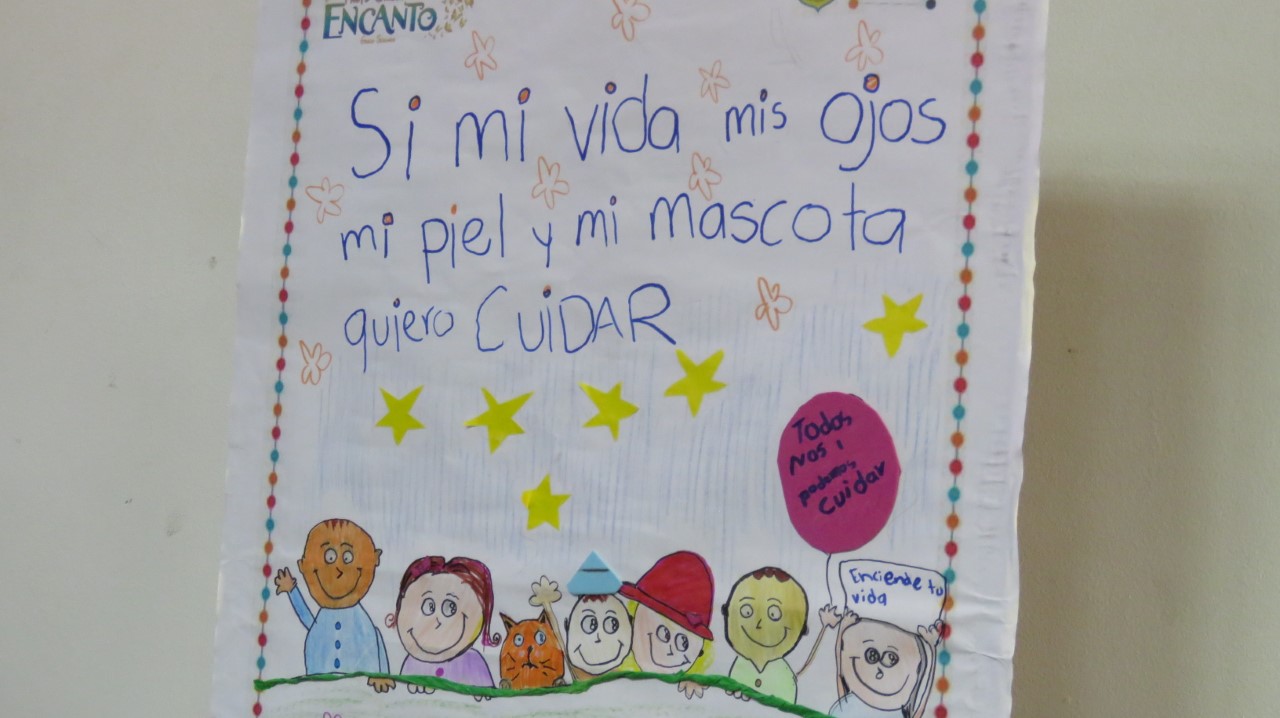 ENCANTO
Si mi vida mis ojos
mi piel y mi mascota
quiero CUIDAR
Todos
Nos
podemos
cuidar
Enciende tu
vida